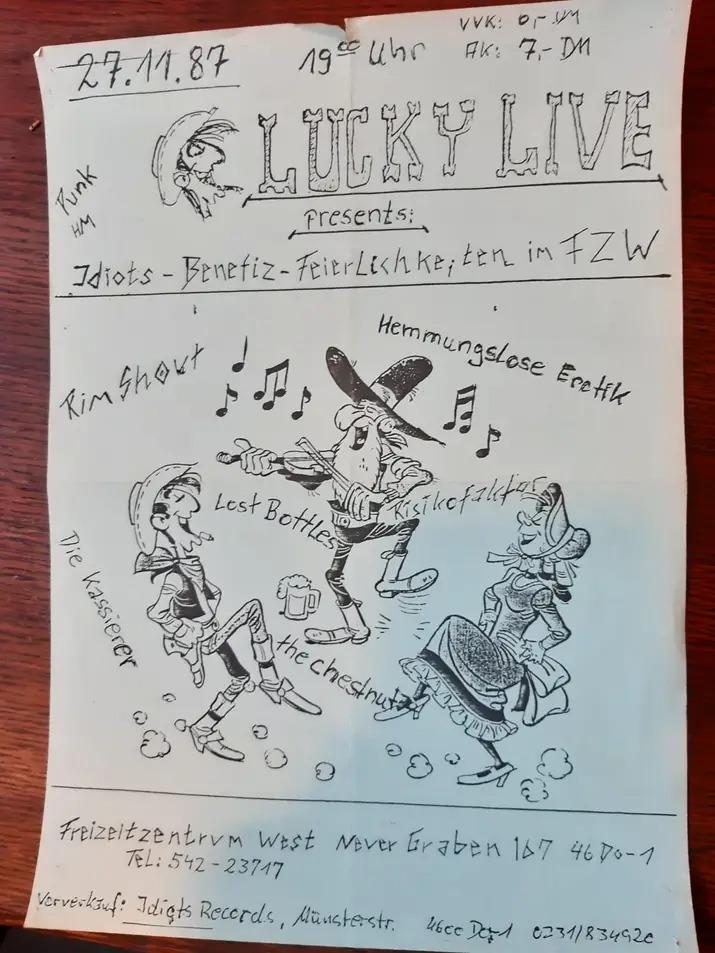 27.11.87
19⁰⁰ Uhr
VVK:
AK: 7,- DM
LUCKY LIVE
Punk
HM
presents:
Idiots - Benefiz - Feierlichkeiten im FZW
Hemmungslose Erotik
Rim Shout
Lost Bottles
Risikofaktor
Die Kassierer
the chestnuts
Freizeitzentrum West Neuer Graben 167 46 Do-1
Tel: 542-23717
Vorverkauf: Idiots Records, Münsterstr. 4600 Do-1 0231/834920